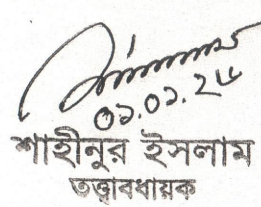 ০১.০১.২৬
শাহীনুর ইসলাম
তত্ত্বাবধায়ক